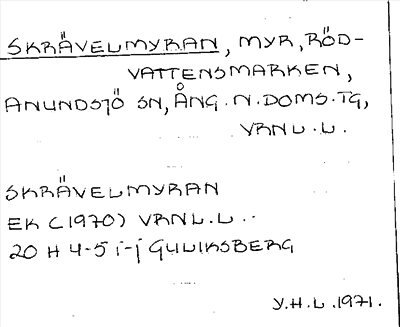 SKRÄVELMYRAN, MYR, RÖD-
VATTENSMARKEN,
ANUNDSJÖ SN, ÅNG. N. DOMS. TG,
VRNL.L.
SKRÄVELMYRAN
EK (1970) VRNL.L...
20 H 4-5 i-j GULIKSBERG
Y.H.L. 1971.